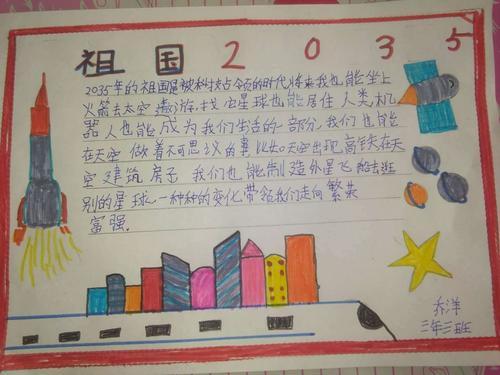 祖国2035
2035年的祖国是被科技占领的时代,将来我也能坐上
火箭去太空遨游,其他星球也能居住人类,机
器人也能成为我们生活的一部分,我们也能
在天空做着不可思议的事比如天空出现高铁在天
空建筑房子我们也能制造外星飞船去逛
别的星球,一种种的变化带领我们走向繁荣
富强.
乔洋
三年三班